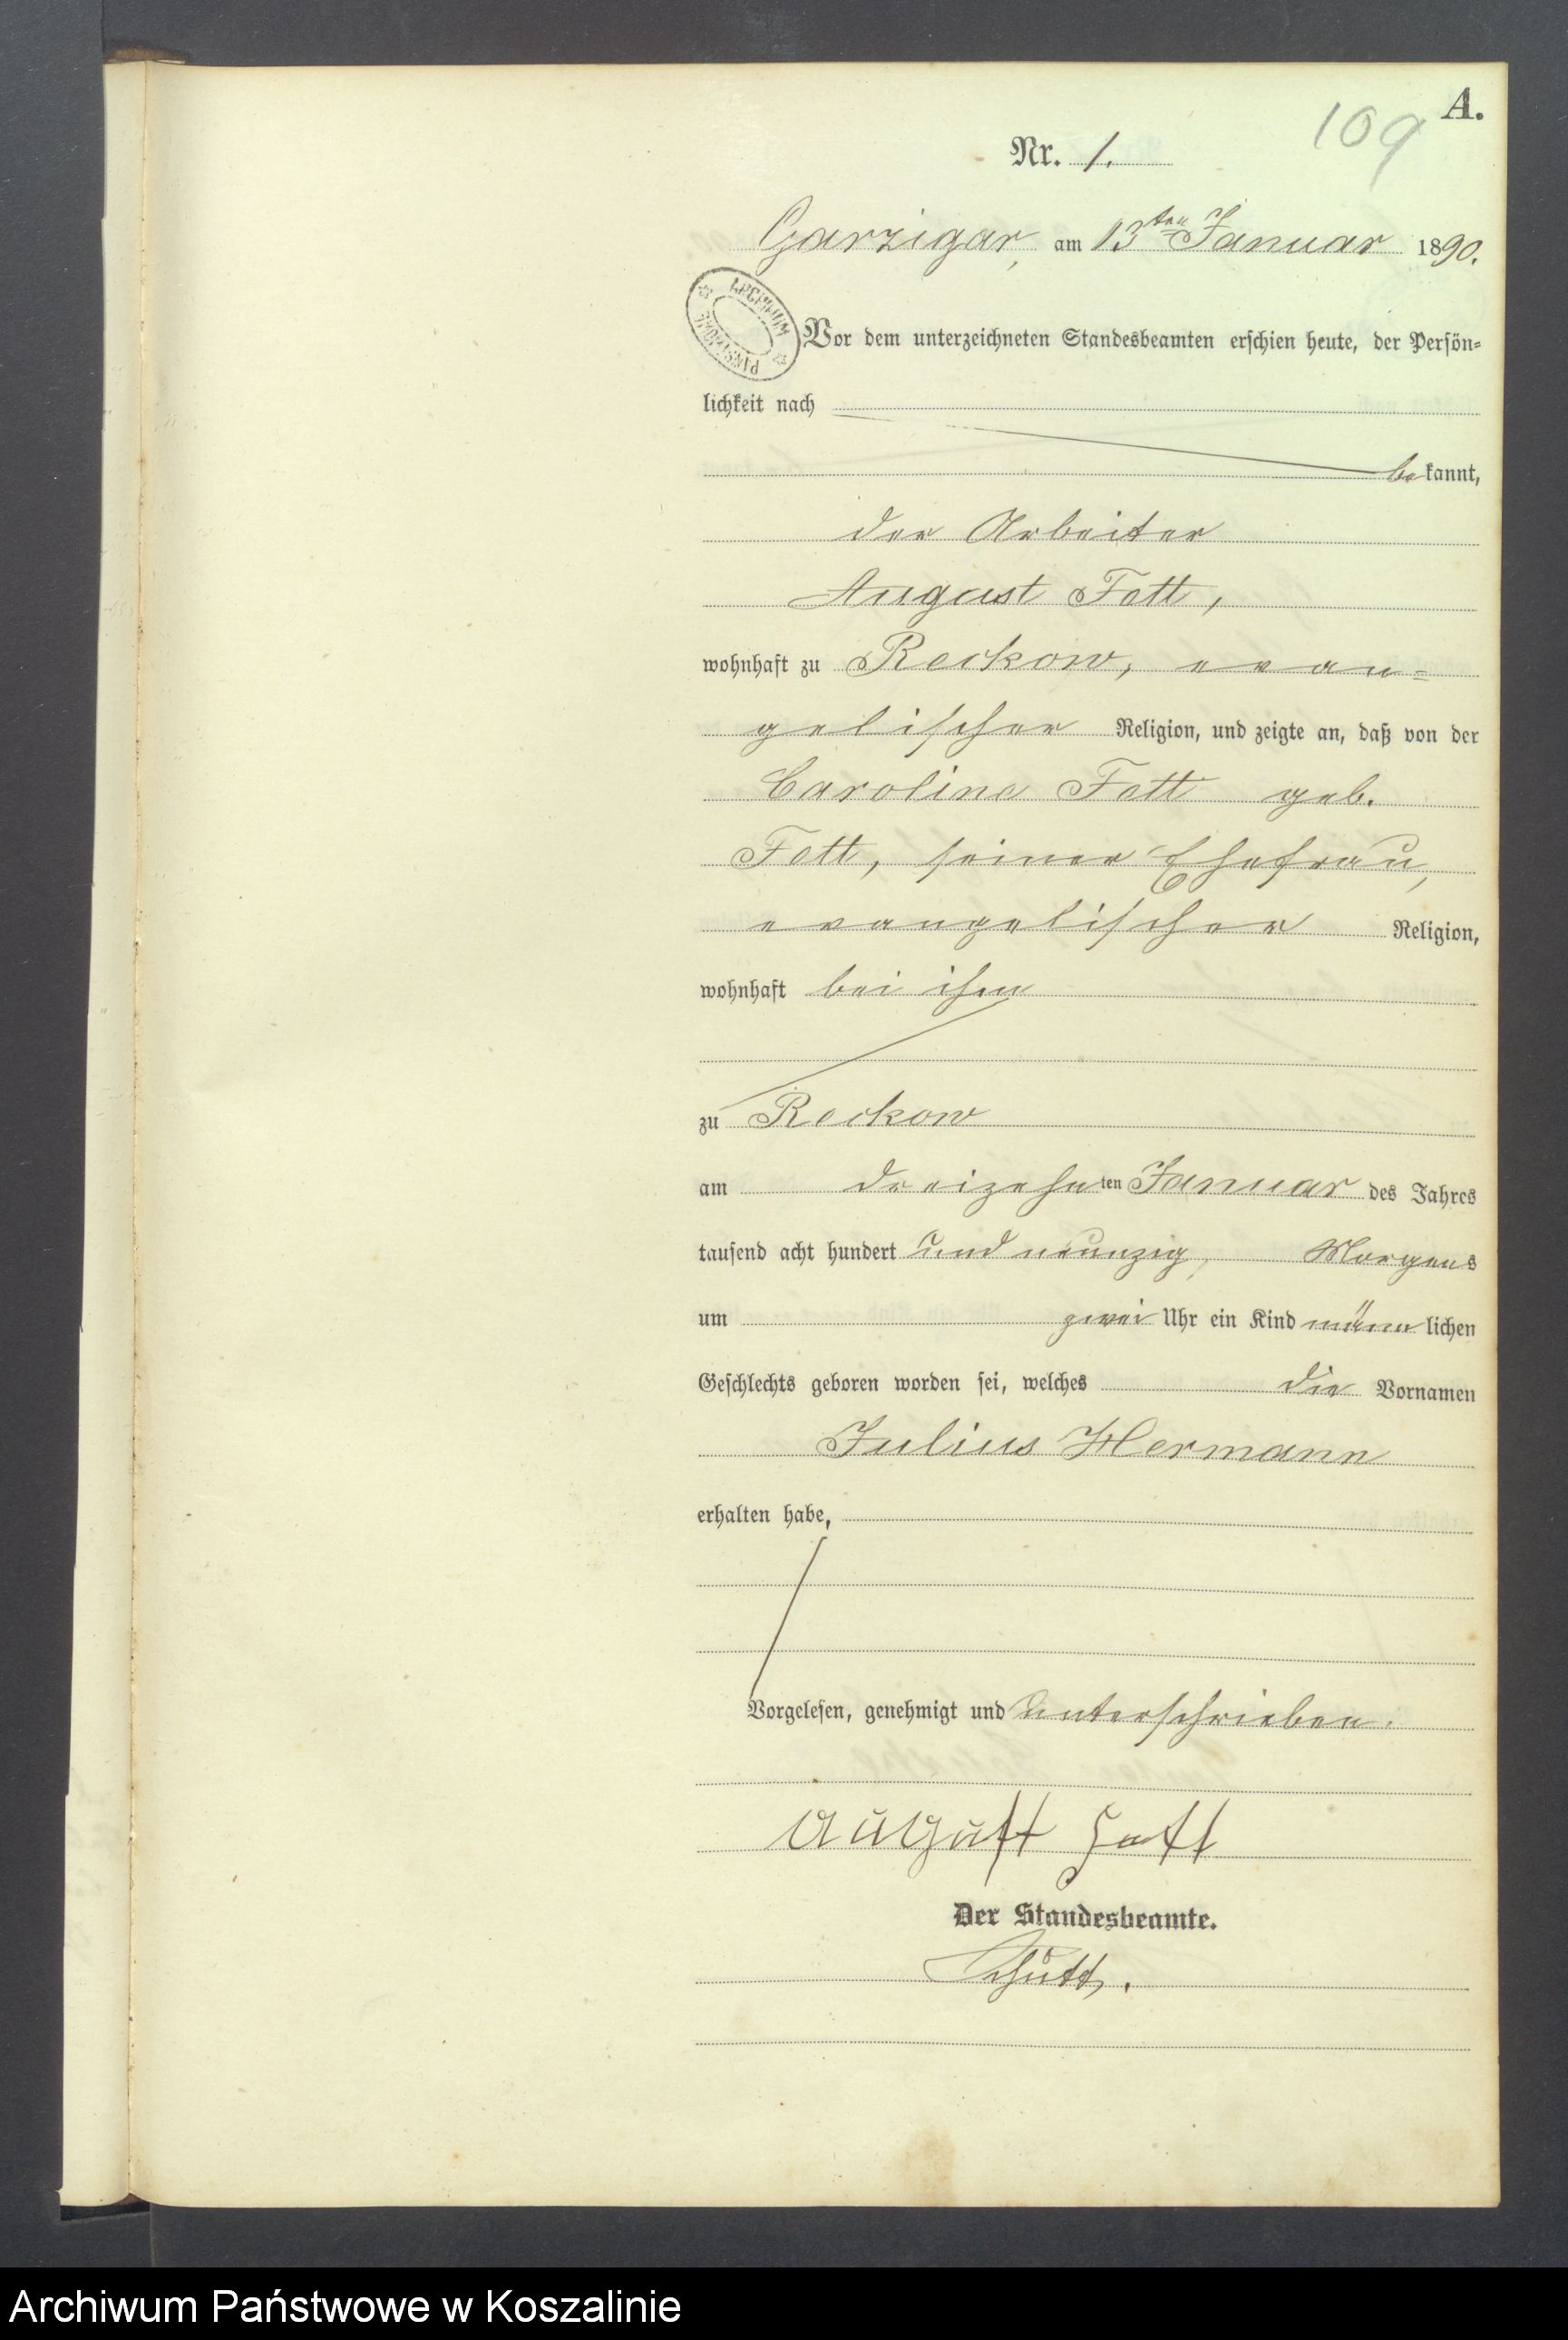 A.
109
Nr. 1.
Garzigar, am 13ten Januar 1890.
ARCHIWUM PAŃSTWOWE
Vor dem unterzeichneten Standesbeamten erschien heute, der Persön-
lichkeit nach
bekannt,
der Arbeiter
August Fett,
wohnhaft zu Reckow, evan-
gelischer Religion, und zeigte an, daß von der
Caroline Fett geb.
Fett, seiner Ehefrau,
evangelischer Religion,
wohnhaft bei ihm
zu Reckow
am dreizehnten Januar des Jahres
tausend acht hundert und neunzig, Morgens
um zwei Uhr ein Kind männlichen
Geschlechts geboren worden sei, welches die Vornamen
Julius Hermann
erhalten habe,
Vorgelesen, genehmigt und unterschrieben.
August Fett
Der Standesbeamte.
Schütt.
Archiwum Państwowe w Koszalinie